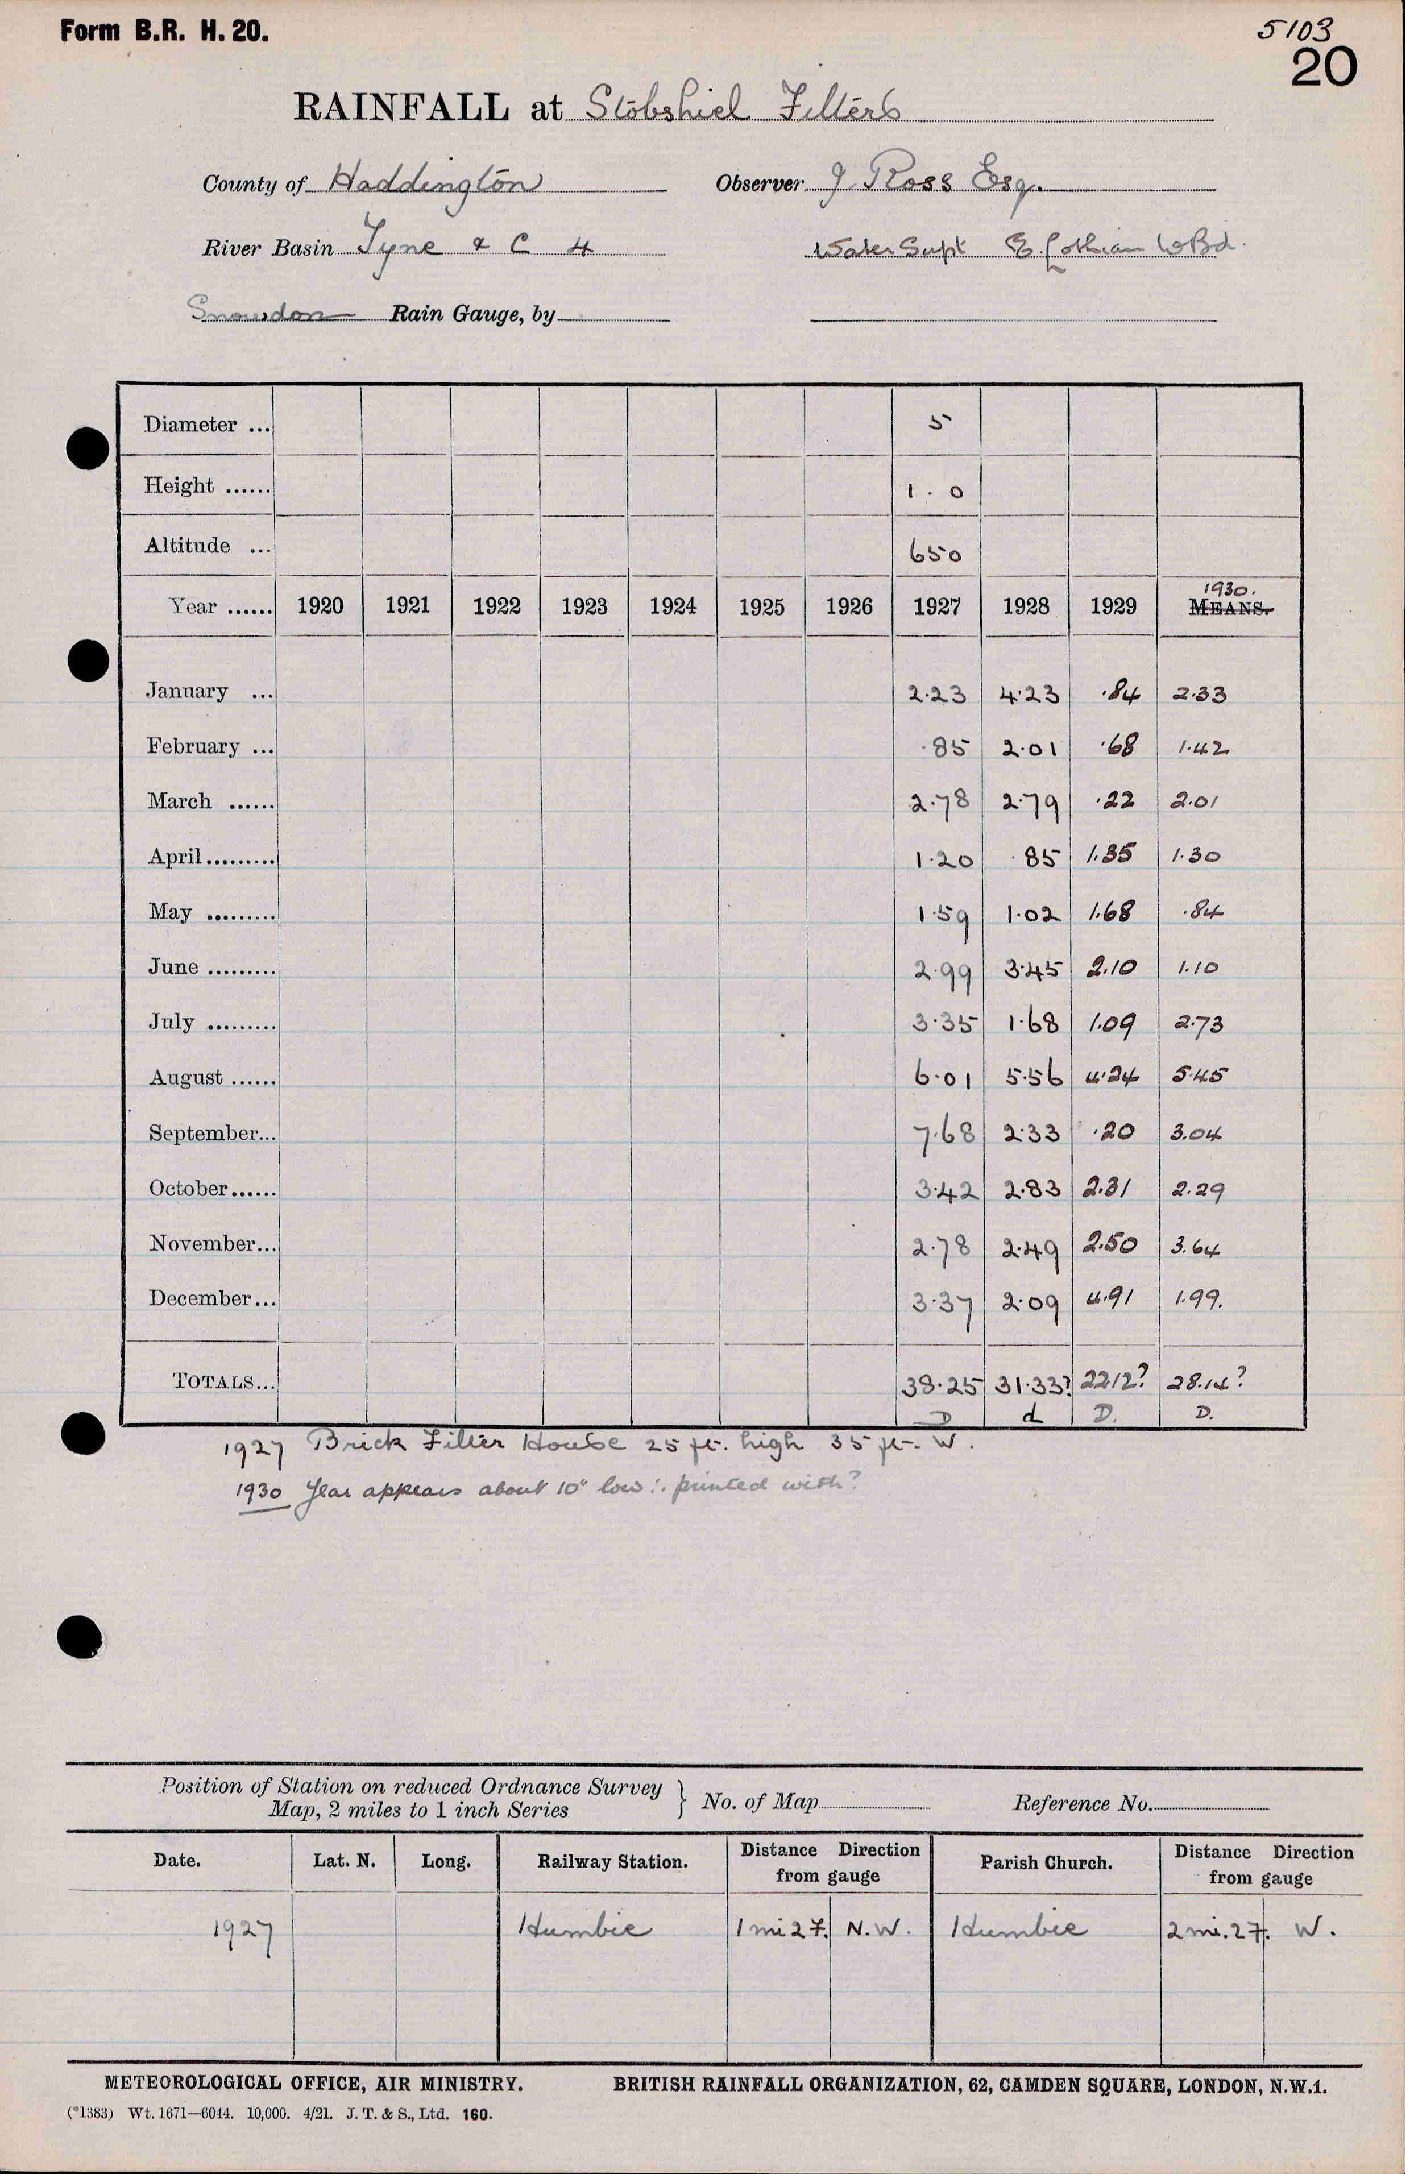 Form B.R. H. 20.
5103
20
RAINFALL at Stobshiel Filters
County of Haddington Observer J. Ross Esq.
River Basin Tyne & C 4 Water Supt E. Lothian W Bd.
Snowdon Rain Gauge, by
Diameter ... 5
Height ...... 1.0
Altitude ... 650
1930.
Year ...... 1920 1921 1922 1923 1924 1925 1926 1927 1928 1929 MEANS.
January ... 2.23 4.23 .84 2.33
February ... .85 2.01 .68 1.42
March ...... 2.78 2.79 .22 2.01
April......... 1.20 .85 1.35 1.30
May ......... 1.59 1.02 1.68 .84
June ......... 2.99 3.45 2.10 1.10
July ......... 3.35 1.68 1.09 2.73
August ...... 6.01 5.56 4.24 5.45
September... 7.68 2.33 .20 3.04
October...... 3.42 2.83 2.31 2.29
November... 2.78 2.49 2.50 3.64
December... 3.37 2.09 4.91 1.99.
TOTALS... 38.25 31.33? 22.12? 28.14?
D d D. D.
1927 Brick Filter House 25 ft. high 35 ft. W.
1930 Year appears about 10" low ∴ printed with ?
Position of Station on reduced Ordnance Survey
Map, 2 miles to 1 inch Series } No. of Map Reference No.
Date. Lat. N. Long. Railway Station. Distance Direction from gauge Parish Church. Distance Direction from gauge
1927 Humbie 1 mi 2 f. N.W. Humbie 2 mi. 2 f. W.
METEOROLOGICAL OFFICE, AIR MINISTRY. BRITISH RAINFALL ORGANIZATION, 62, CAMDEN SQUARE, LONDON, N.W.1.
(*1383) Wt. 1671—6044. 10,000. 4/21. J. T. & S., Ltd. 160.